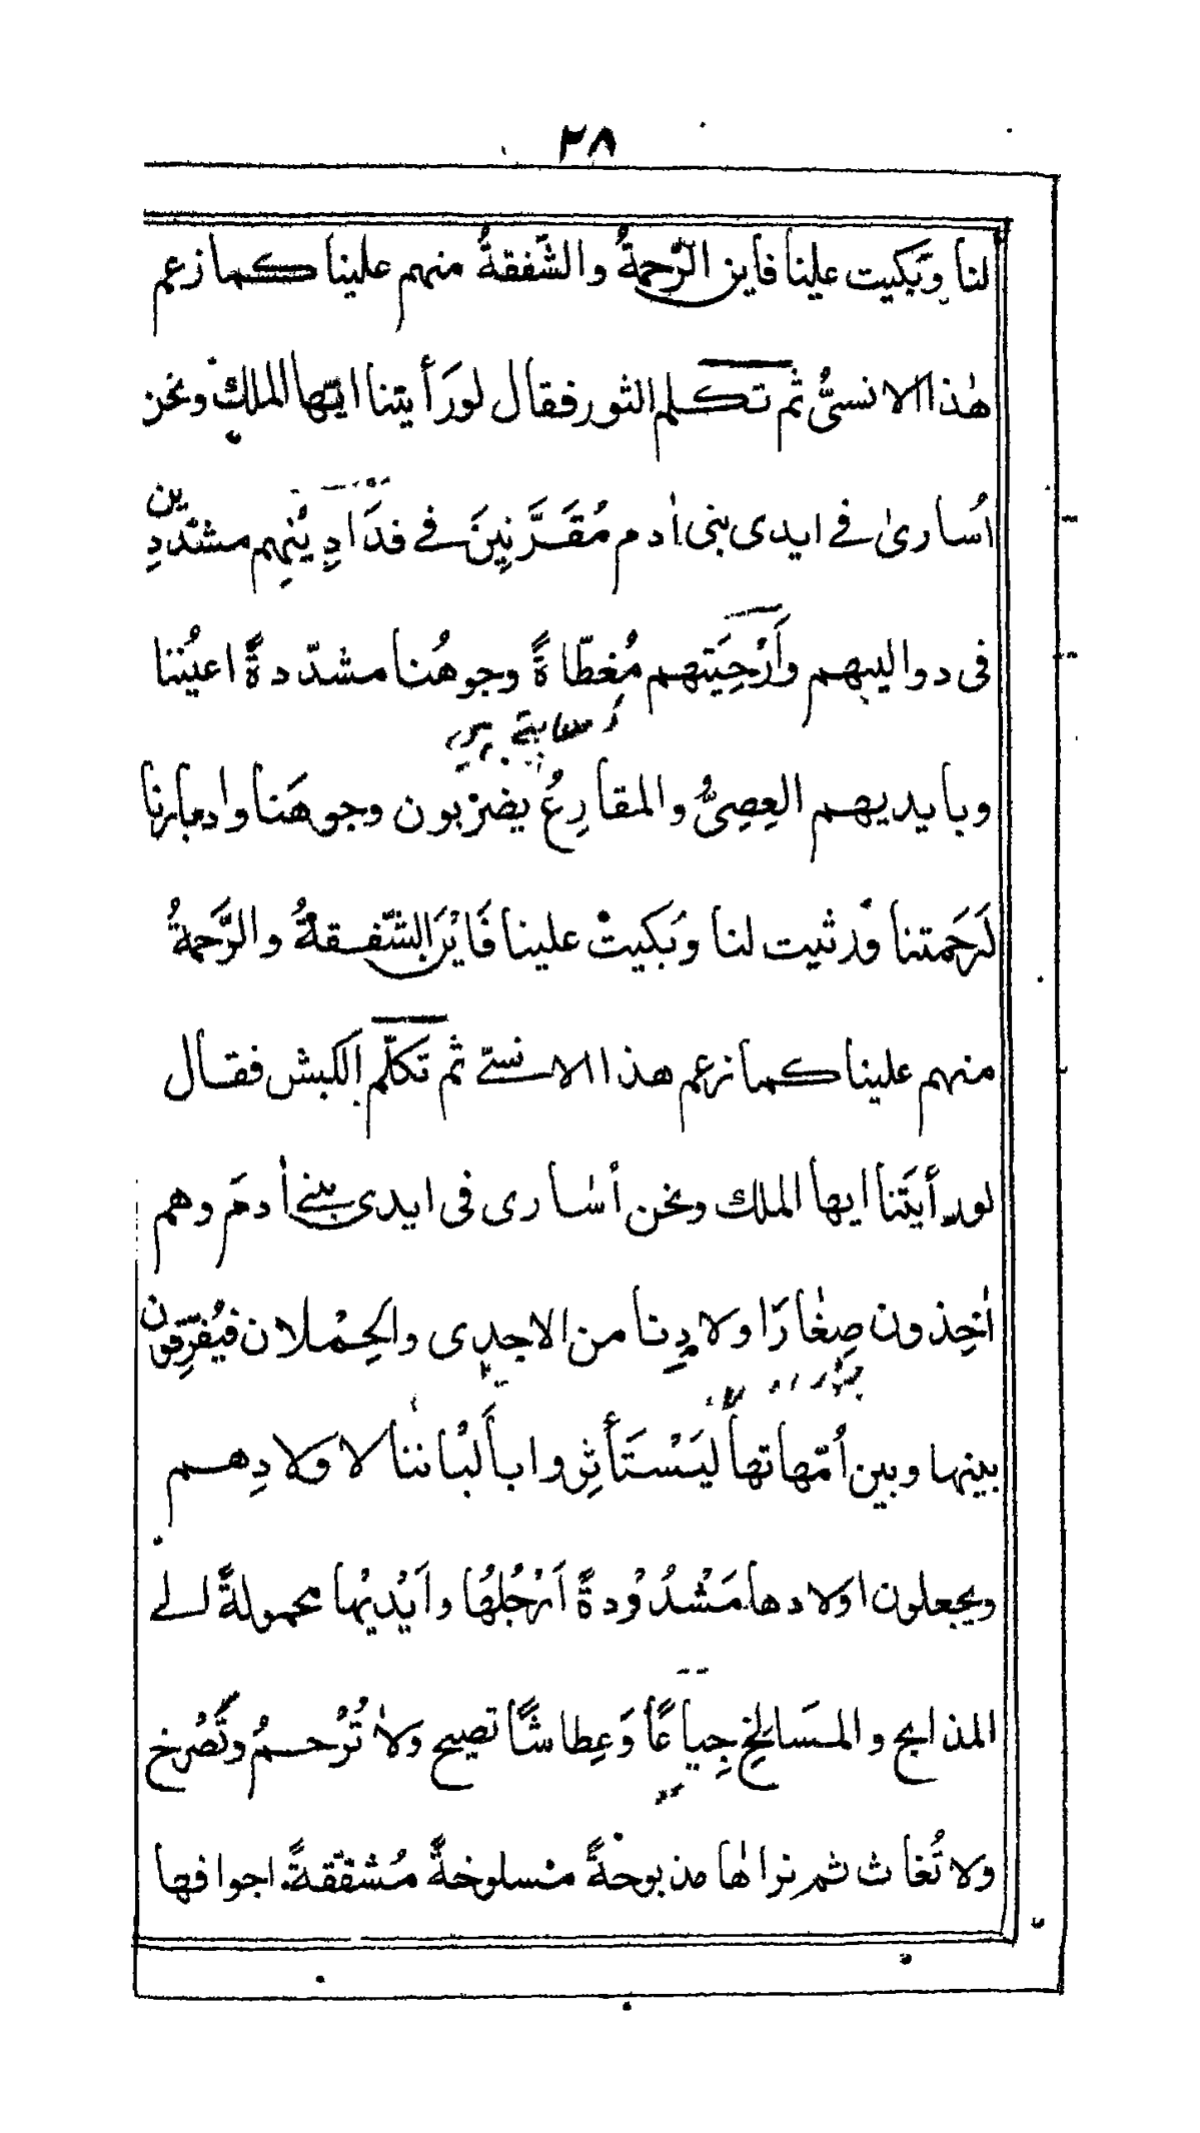 ٢٨
لنا وَبَكيت علينا فاين الرّحمةُ والشّفقةُ منهم علينا كما زعم
هٰذا الانسىُّ ثم تكلم الثور فقال لو رَأيتنا ايّها الملك ونحن
اُسارىٰ فے ايدى بنى اٰدم مُقَرَّنِينَ فے فدَادِيْنِهم مشدّدِين
فى دواليبهم وَأَرْحِيَتهم مُغطّاةً وجوهُنا مشدّدةً اعيُننا
وبايديهم العِصِىُّ والمقارِعُ يضرْبون وجوهَنا وادبارنا
لَرَحَمتنا وَرثيت لنا وَبَكيتْ علينا فَايْنَ الشّفقةُ والرَّحمةُ
منهم علينا كما زعم هذا الانسےّ ثم تَكلّم الكبش فقال
لو رأيتَنا ايها الملك ونحن أسارى فى ايدى بنے اٰدمَ وهم
اٰخِذون صِغارًا ولادِنا من الاجدِى والحِمْلان فيُفرّقون
بينها وبين اُمّهاتها ليَسْتَأثِروا بألبْاننا لاولادِهم
ويجعلون اولادها مَشْدُوْدةً اَرْجُلهُا واَيْديْها محمولةً الے
المذابح والمسَالخِ جِياعًا وَعِطاشًا تصيح ولا تُرْحمُ وتَصْرخ
ولا تُغاث ثم نراها مذبوحةً مسلوخةً مُشقّقةً اجوافها